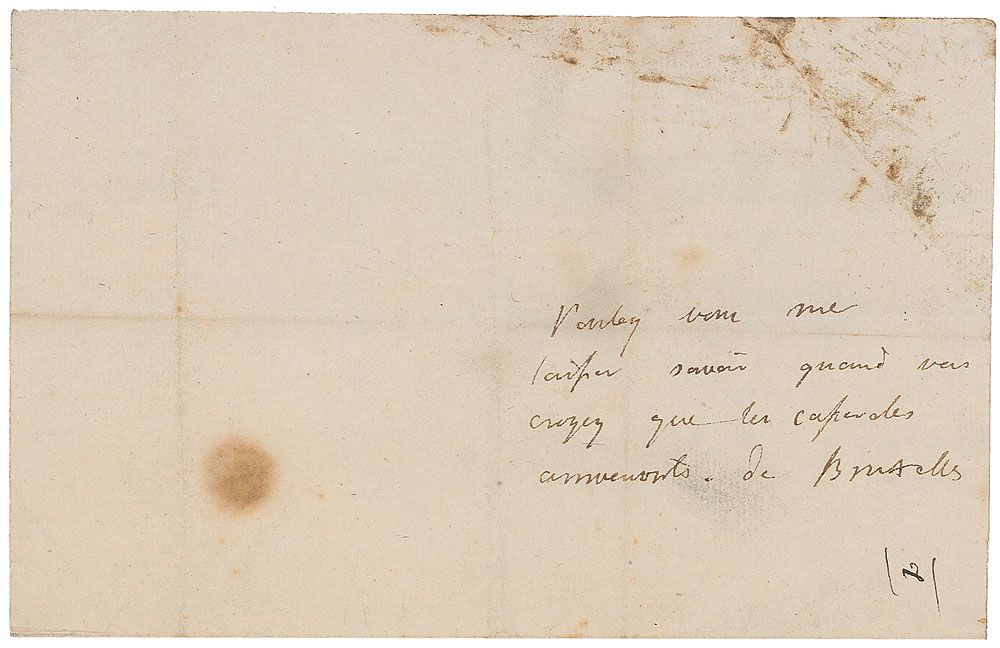 Voulez vous me
laisser savoir quand vous
croyez que les casseroles
arriveronts. de Bruxelles
(2)